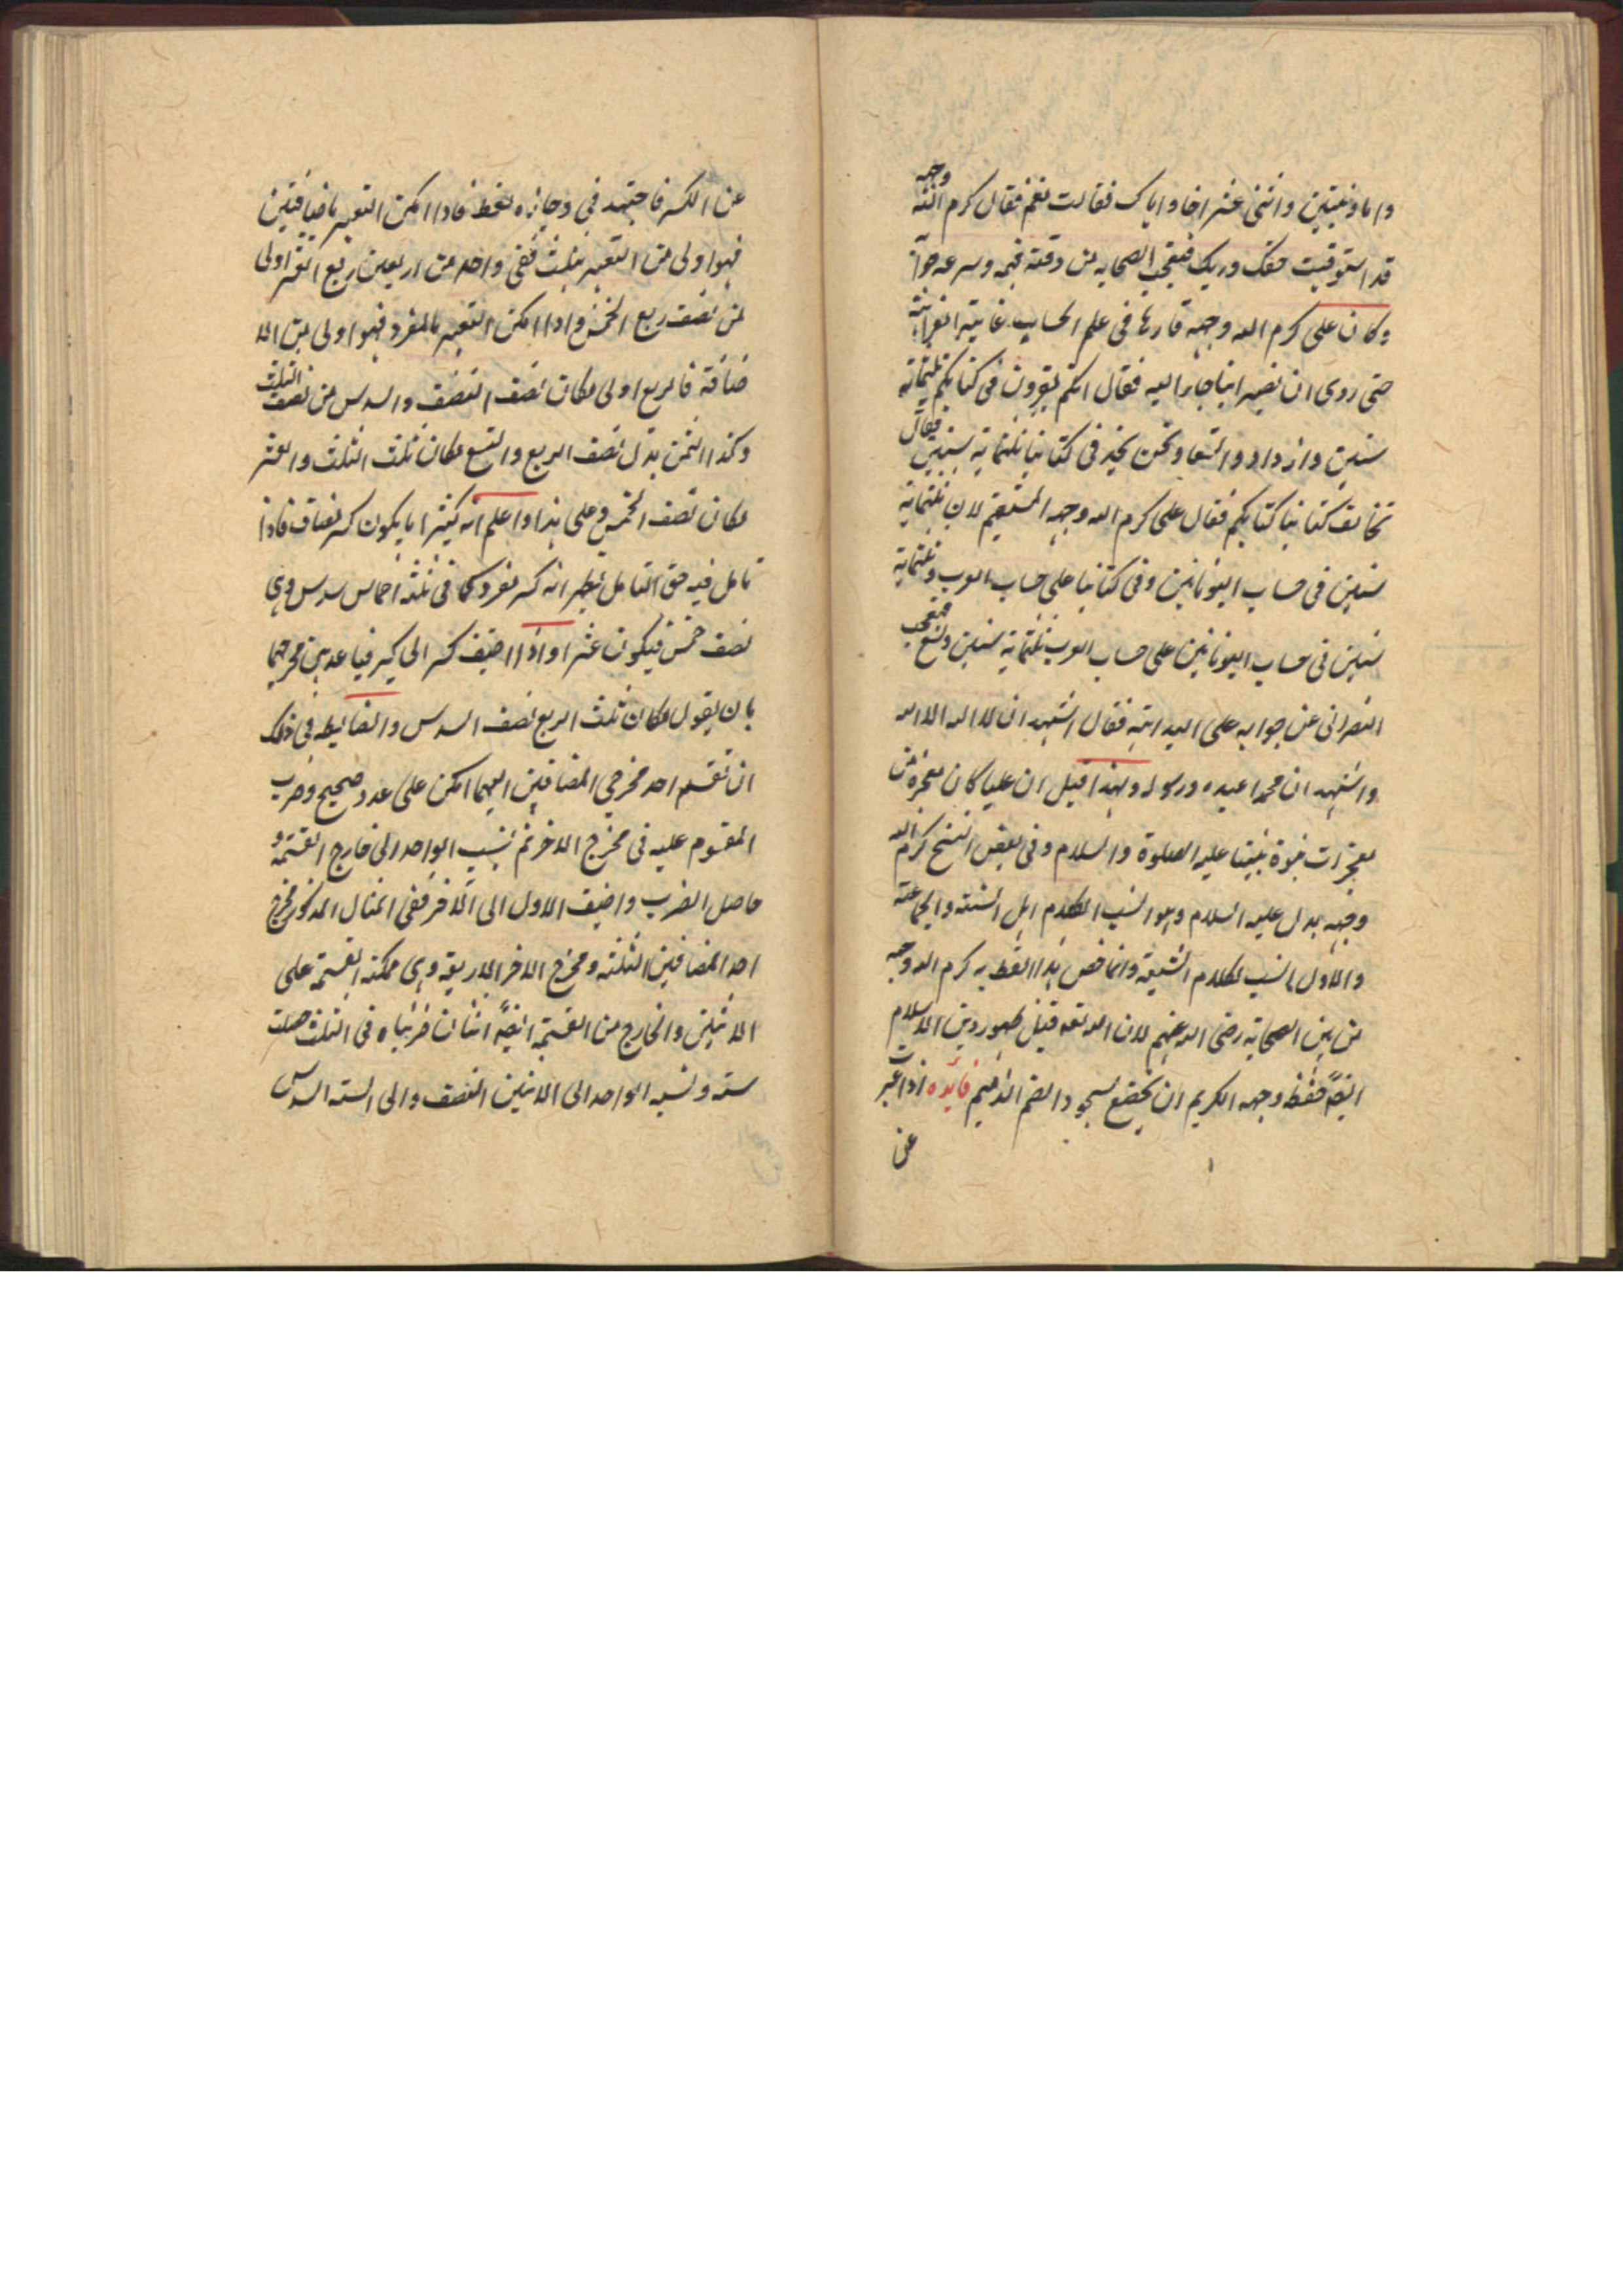 واما وبنتين واثنى عشر اخا واياك فقالت نعم فقال كرم الله وجهه
قد استوفيت حقك وريك فتعجب الصحابه من دقة فهمه وسرعه جوابه
وكان على كرم الله وجهه قارئا فى علم الحساب غاية الغرابة
حتى روى ان نصرانيا جاء اليه فقال انكم تقرون فى كتابكم ثلثمائة
سنين وازدادوا تسعا ونحن نجد فى كتابنا ثلثمائة سنين فقال
تخالف كتابنا كتابكم فقال على كرم الله وجهه المستقيم لان ثلثمائة
سنين فى حساب اليونانين وفى كتابنا على حساب العرب وثلثماية
سنين فى حساب اليونانين على حساب العرب ثلثماية سنين وتسع فتعجب
النصرانى عن جوابه على البداهة فقال اشهد ان لا اله الا الله
واشهد ان محمدا عبده ورسوله ولهذا قيل ان عليا كان معجزة من
معجزات نبوة نبينا عليه الصلوة والسلام وفى بعض النسخ كرم الله
وجهه بدل عليه السلام وهو انسب لكلام اهل السنة والجماعة
والاول انسب لكلام الشيعة وانما خص هذا اللفظ به كرم الله وجهه
من بين الصحابة رضى الله عنهم لان الله تعه قبل ظهور دين الاسلام
ايضا حفظ وجهه الكريم ان يخضع لسجود الصنم الذميم فائده اذا عبرت
عن
عن الكسر فاجتهد فى وجازه لفظ فاذا امكن التعبير باضافتين
فهو اولى من التعبير بثلث ففى واحد من اربعين ربع العشر اولى
من نصف ربع الخمس واذا امكن التعبير بالمفرد فهو اولى من الا
ضافة فالربع اولى مكان نصف النصف والسدس من نصف الثلث
وكذا الثمن بدل نصف الربع والتسع مكان ثلث الثلث والعشر
مكان نصف الخمس وعلى هذا واعلم انه كثيرا ما يكون كسر مضاف فاذا
تامل فيه حق التامل يظهر انه كسر مفرد كما فى ثلثة اخماس سدس وهى
نصف خمس فيكون عشرا واذا اضيف كسر الى كسر فباعد بين مخرجهما
بان يقول مكان ثلث الربع نصف السدس والضابطه فى ذلك
ان تقسم احد مخرجى المضافين ايهما امكن على عدد صحيح وضرب
المقسوم عليه فى مخرج الاخر ثم ينسب الواحد الى خارج القسمة و
حاصل الضرب واضيف الاول الى الاخر ففى المثال المذكور مخرج
احد المضافين الثلثة ومخرج الاخر الاربعة وهى ممكنة القسمة على
الاثنين والخارج من القسمة ايضا اثنان ضربناه فى الثلث حصلت
ستة ونسبه الواحد الى الاثنين النصف والى الستة السدس